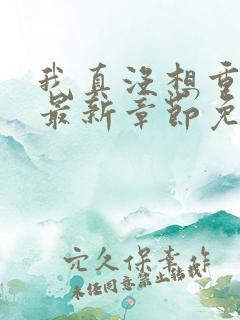 我真没想重
最新章节免
穴久保幸作
未经同意禁止转载